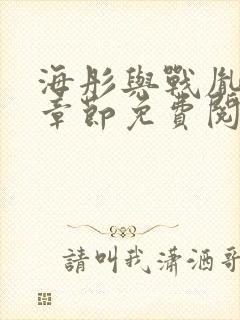 海彤與戰胤
章節免費閱
請叫我瀟洒哥